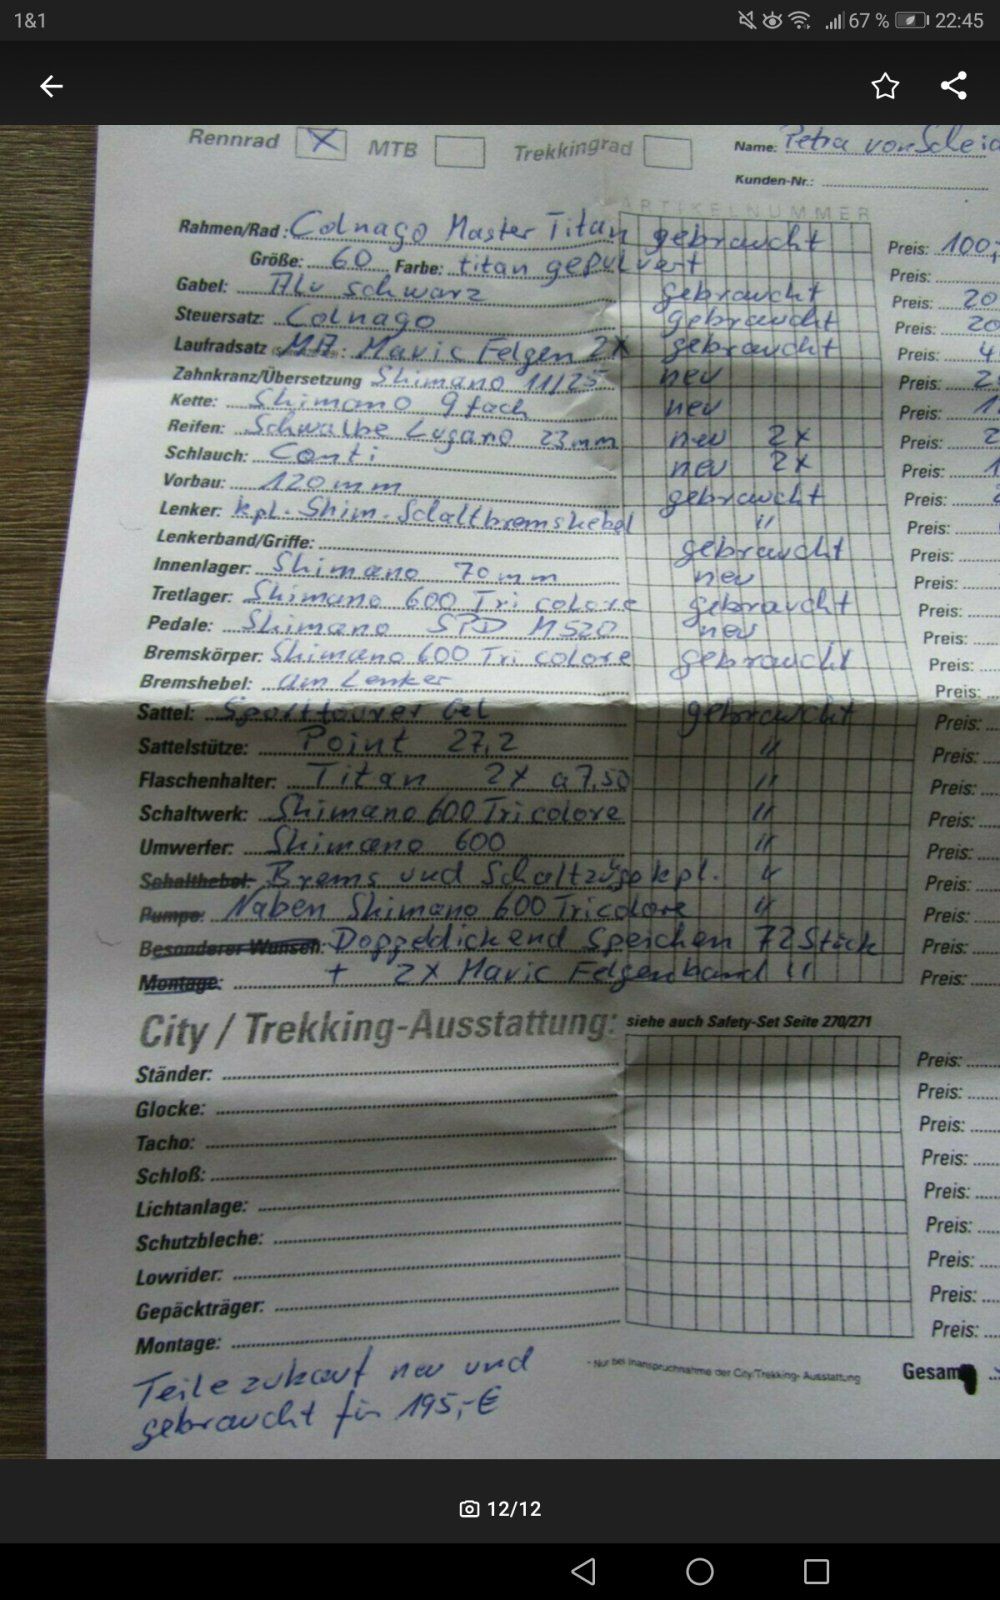 1&1 67 % 22:45
Rennrad X MTB Trekkingrad Name: Petra von
Kunden-Nr.:
ARTIKELNUMMER
Rahmen/Rad: Colnago Master Titan gebraucht Preis: 100,
Größe: 60 Farbe: titan gepulvert Preis:
Gabel: Alu schwarz gebraucht Preis: 20
Steuersatz: Colnago gebraucht Preis: 20
Laufradsatz MA: Mavic Felgen 2x gebraucht Preis: 4
Zahnkranz/Übersetzung Shimano 11/25 neu Preis: 2
Kette: Shimano 9 fach neu Preis: 1
Reifen: Schwalbe Lugano 23 mm neu 2x Preis: 2
Schlauch: Conti neu 2x Preis: 1
Vorbau: 120 mm gebraucht Preis:
Lenker: kpl. Shim. Schaltbremshebel " Preis:
Lenkerband/Griffe: gebraucht Preis:
Innenlager: Shimano 70 mm neu Preis:
Tretlager: Shimano 600 Tri colore gebraucht Preis:
Pedale: Shimano SPD M520 neu Preis:
Bremskörper: Shimano 600 Tri colore gebraucht Preis:
Bremshebel: am Lenker Preis:
Sattel: Sporttourer Gel gebraucht Preis:
Sattelstütze: Point 27,2 " Preis:
Flaschenhalter: Titan 2x a 7,50 " Preis:
Schaltwerk: Shimano 600 Tricolore " Preis:
Umwerfer: Shimano 600 " Preis:
Schalthebel: Brems und Schaltzüge kpl. " Preis:
Pumpe: Naben Shimano 600 Tricolore " Preis:
Besonderer Wunsch: Doppeldickend Speichen 72 Stück Preis:
Montage: + 2x Mavic Felgenband " Preis:
City / Trekking-Ausstattung: siehe auch Safety-Set Seite 270/271
Ständer: Preis:
Glocke: Preis:
Tacho: Preis:
Schloß: Preis:
Lichtanlage: Preis:
Schutzbleche: Preis:
Lowrider: Preis:
Gepäckträger: Preis:
Montage: Preis:
- Nur bei Inanspruchnahme der City/Trekking- Ausstattung Gesam
Teile zukauf neu und
gebraucht für 195,-€
12/12